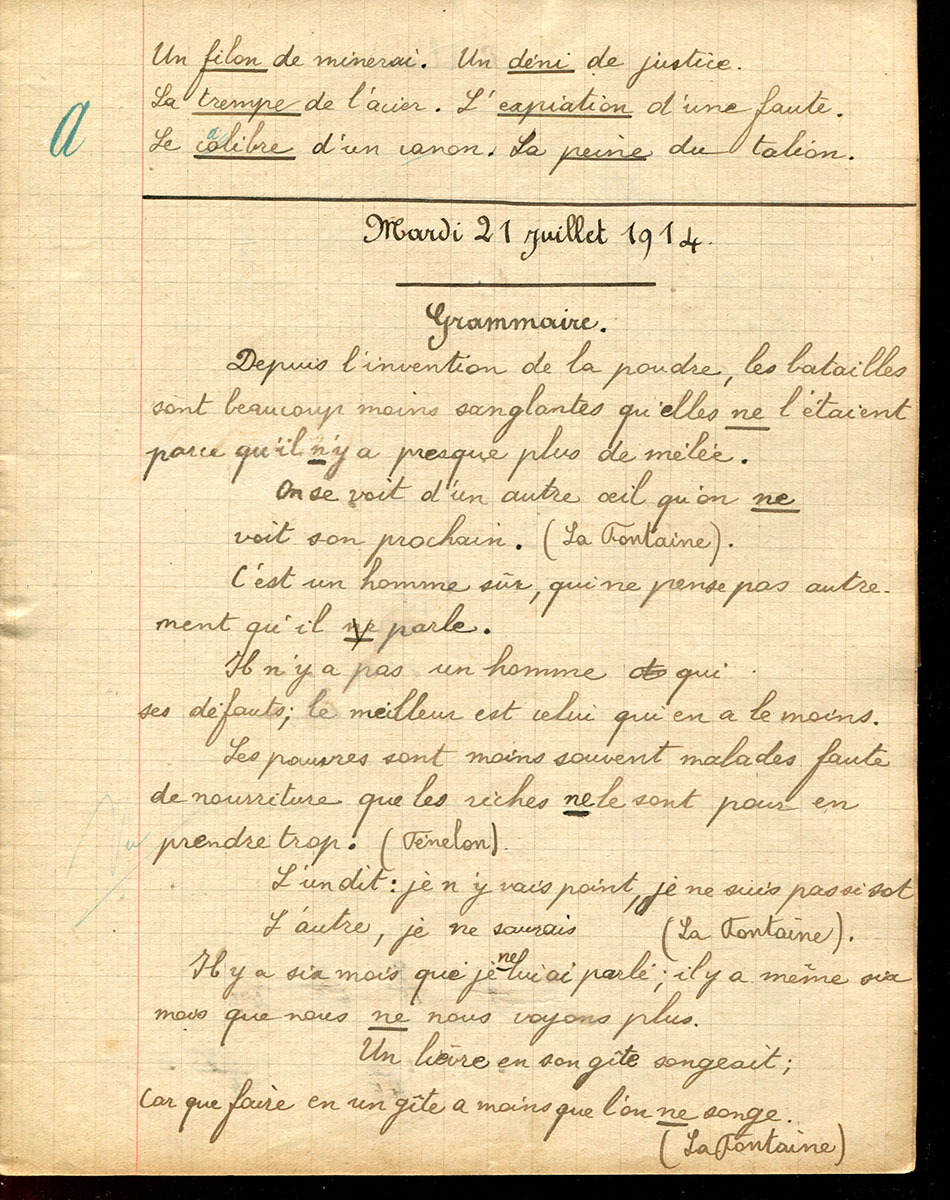 Un filon de minerai. Un déni de justice.
La trempe de l'acier. L'expiation d'une faute.
a
Le calibre d'un canon. La peine du talion.
Mardi 21 juillet 1914.
Grammaire.
Depuis l'invention de la poudre, les batailles
sont beaucoup moins sanglantes qu'elles ne l'étaient
parce qu'il n'y a presque plus de mêlée.
On se voit d'un autre œil qu'on ne
voit son prochain. (La Fontaine).
C'est un homme sûr, qui ne pense pas autre-
ment qu'il ne parle.
Il n'y a pas un homme qui
ses défauts; le meilleur est celui qui en a le moins.
Les pauvres sont moins souvent malades faute
de nourriture que les riches ne le sont pour en
prendre trop. (Fénelon).
Vu
L'un dit: je n'y vais point, je ne suis pas si sot
L'autre, je ne saurais (La Fontaine).
Il y a six mois que je ne lui ai parlé; il y a même six
mois que nous ne nous voyons plus.
Un lièvre en son gîte songeait;
Car que faire en un gîte a moins que l'on ne songe.
(La Fontaine)